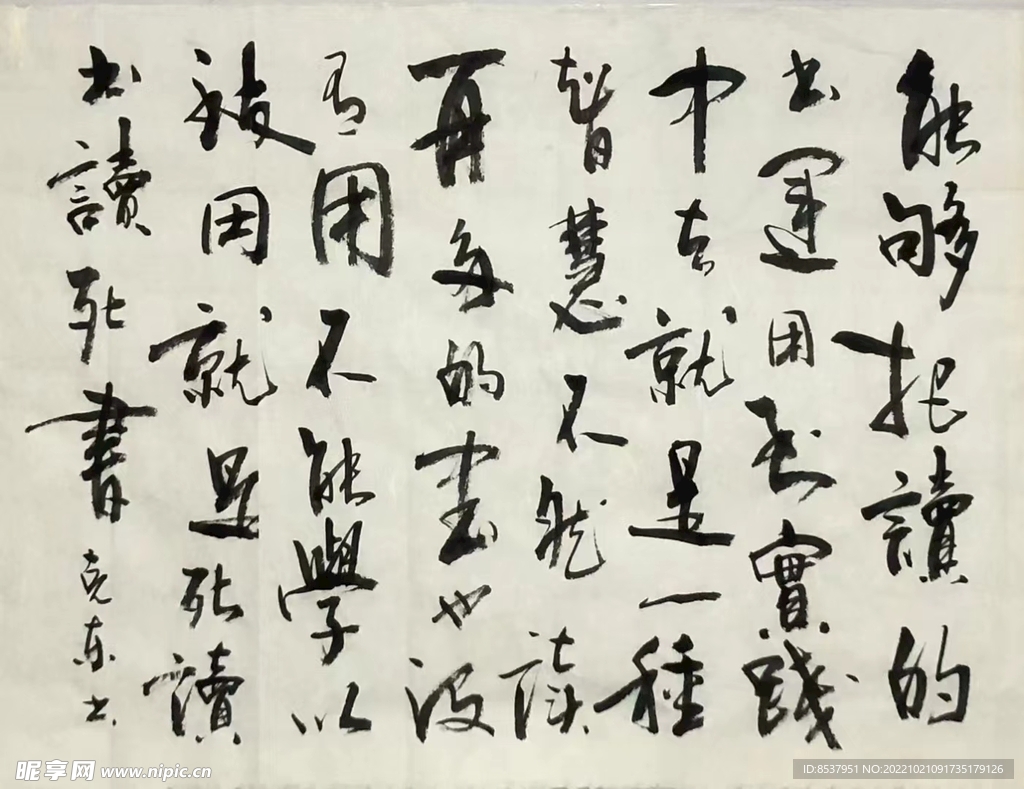 能够把讀的
书運用到實踐
中去就是一種
智慧不然读
再多的書也没
有用不能學以
致用就是死讀
书讀死書
克东书
昵享网 www.nipic.cn
ID:8537951 NO:20221021091735179126